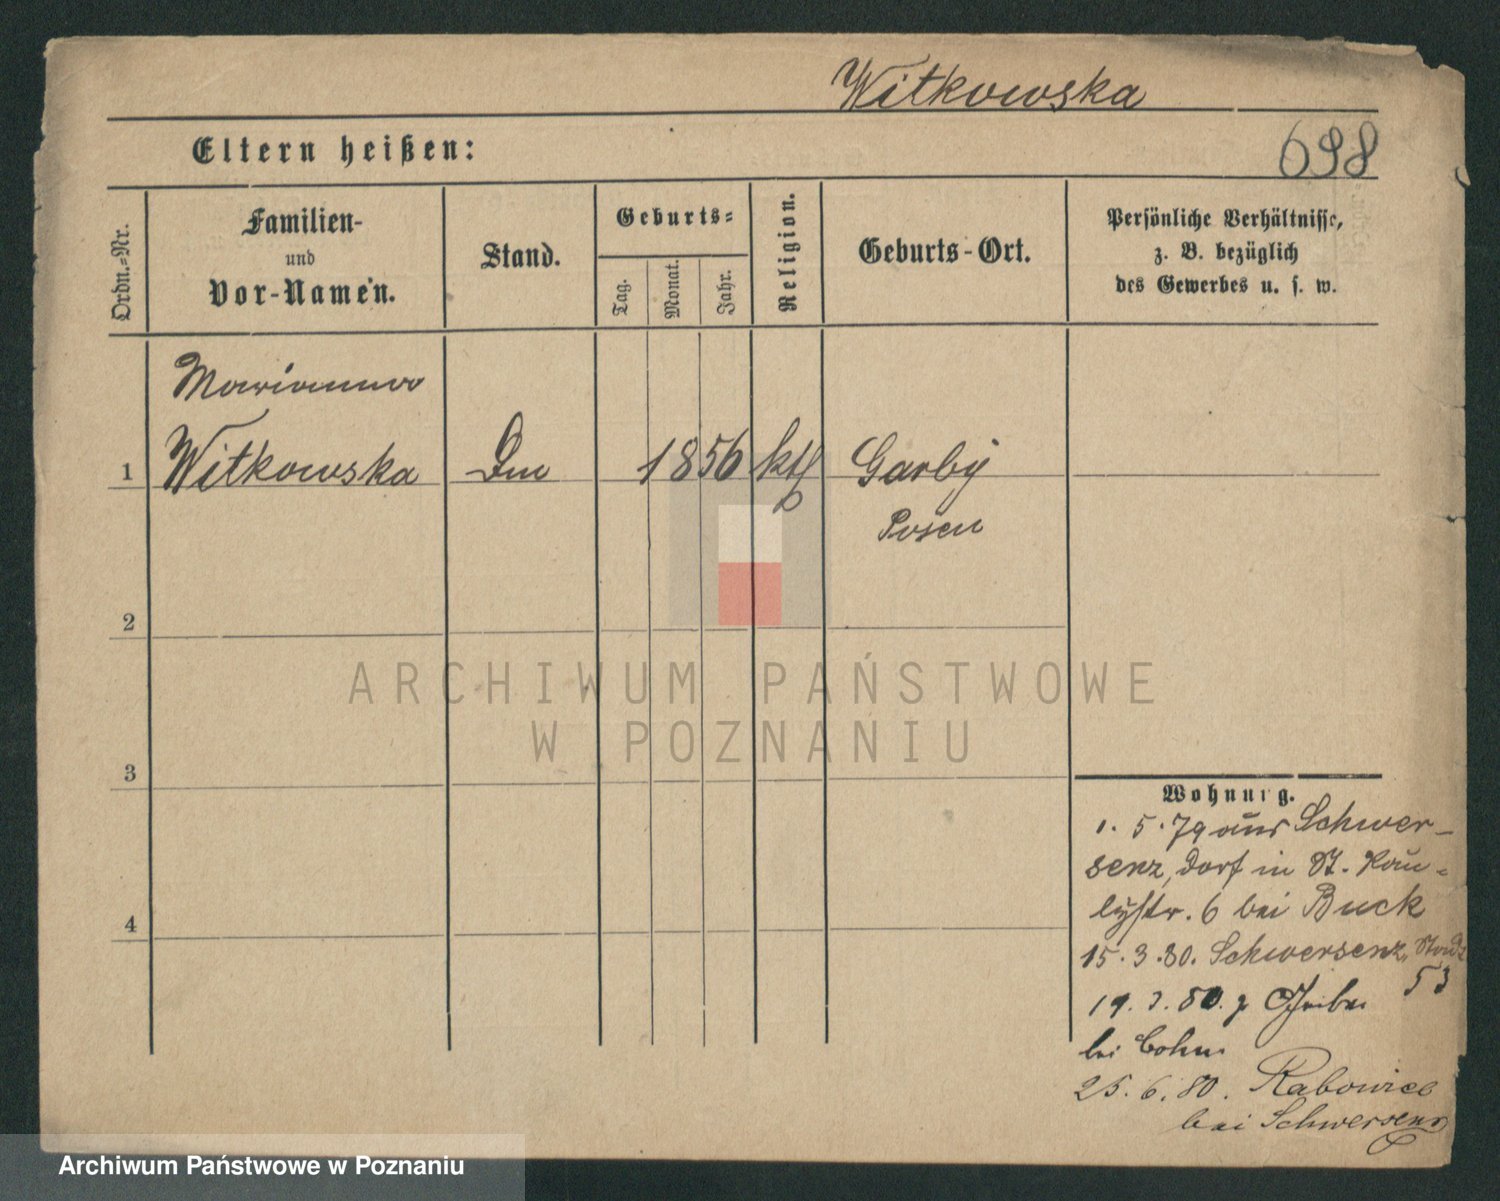 Witkowska
698
Eltern heißen:
Ordn.=Nr.
Familien-
und
Vor-Namen.
Stand.
Geburts=
Tag.
Monat.
Jahr.
Religion.
Geburts-Ort.
Persönliche Verhältnisse,
z. B. bezüglich
des Gewerbes u. s. w.
Marianna
1 Witkowska 1856 kth Garby
Posen
2
3
4
ARCHIWUM PAŃSTWOWE
W POZNANIU
Wohnung.
1. 5. 79 aus Schwer-
senz, Dorf in St.
6 bei Buck
15. 3. 80. Schwersenz, Stadt
53
19. 3. 80.
bei Cohn
25. 6. 80. Rabowice
bei Schwersenz
Archiwum Państwowe w Poznaniu